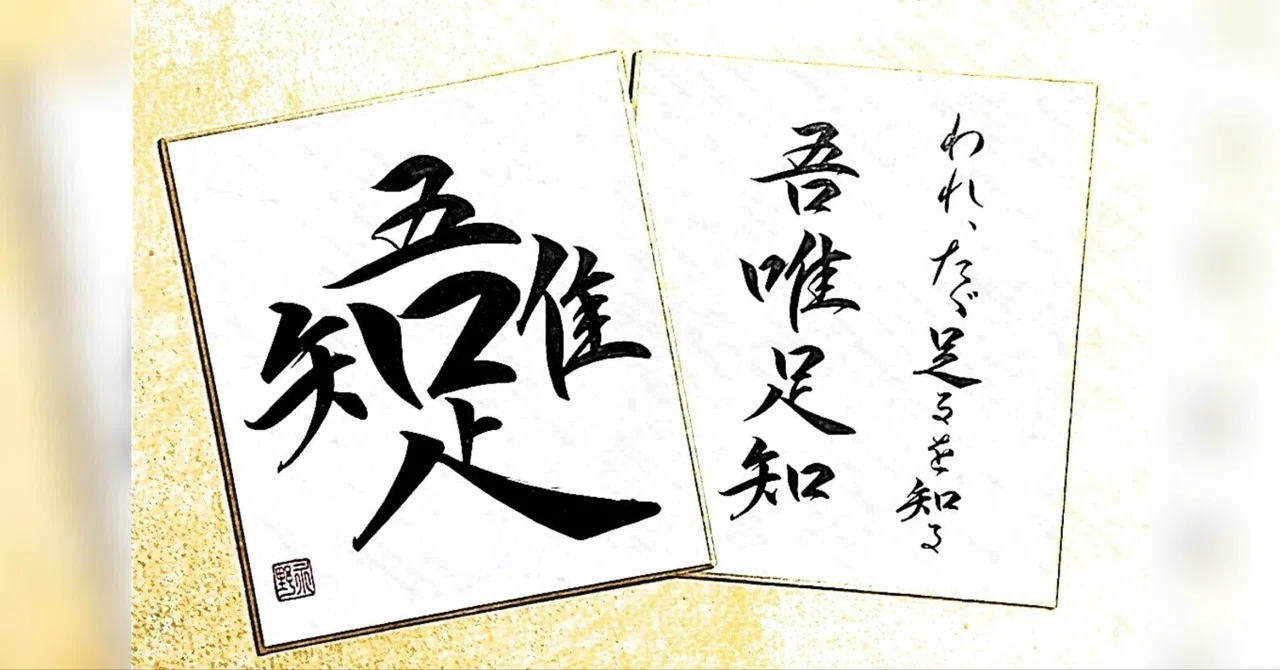 吾唯足知
われ、たゞ足るを知る
吾唯足知